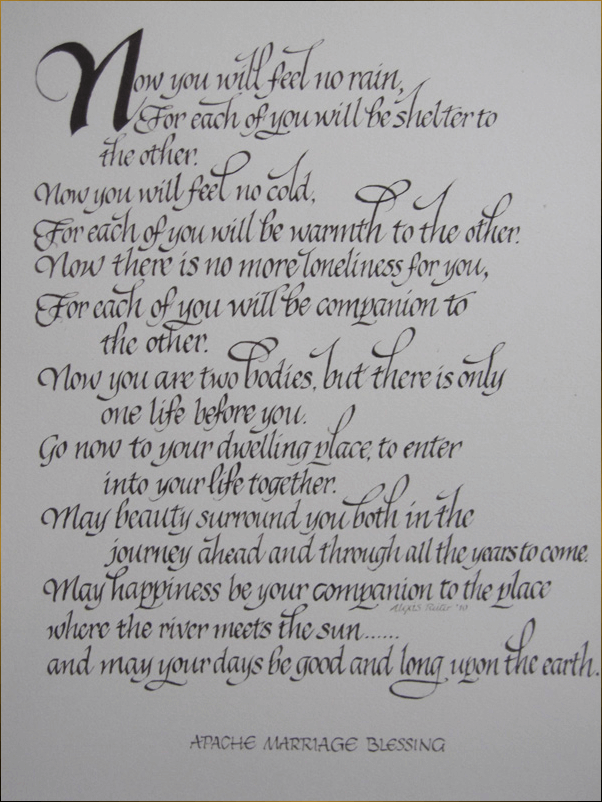 Now you will feel no rain,
For each of you will be shelter to
the other.
Now you will feel no cold,
For each of you will be warmth to the other.
Now there is no more loneliness for you,
For each of you will be companion to
the other.
Now you are two bodies, but there is only
one life before you.
Go now to your dwelling place, to enter
into your life together.
May beauty surround you both in the
journey ahead and through all the years to come.
May happiness be your companion to the place
where the river meets the sun......
and may your days be good and long upon the earth.
APACHE MARRIAGE BLESSING